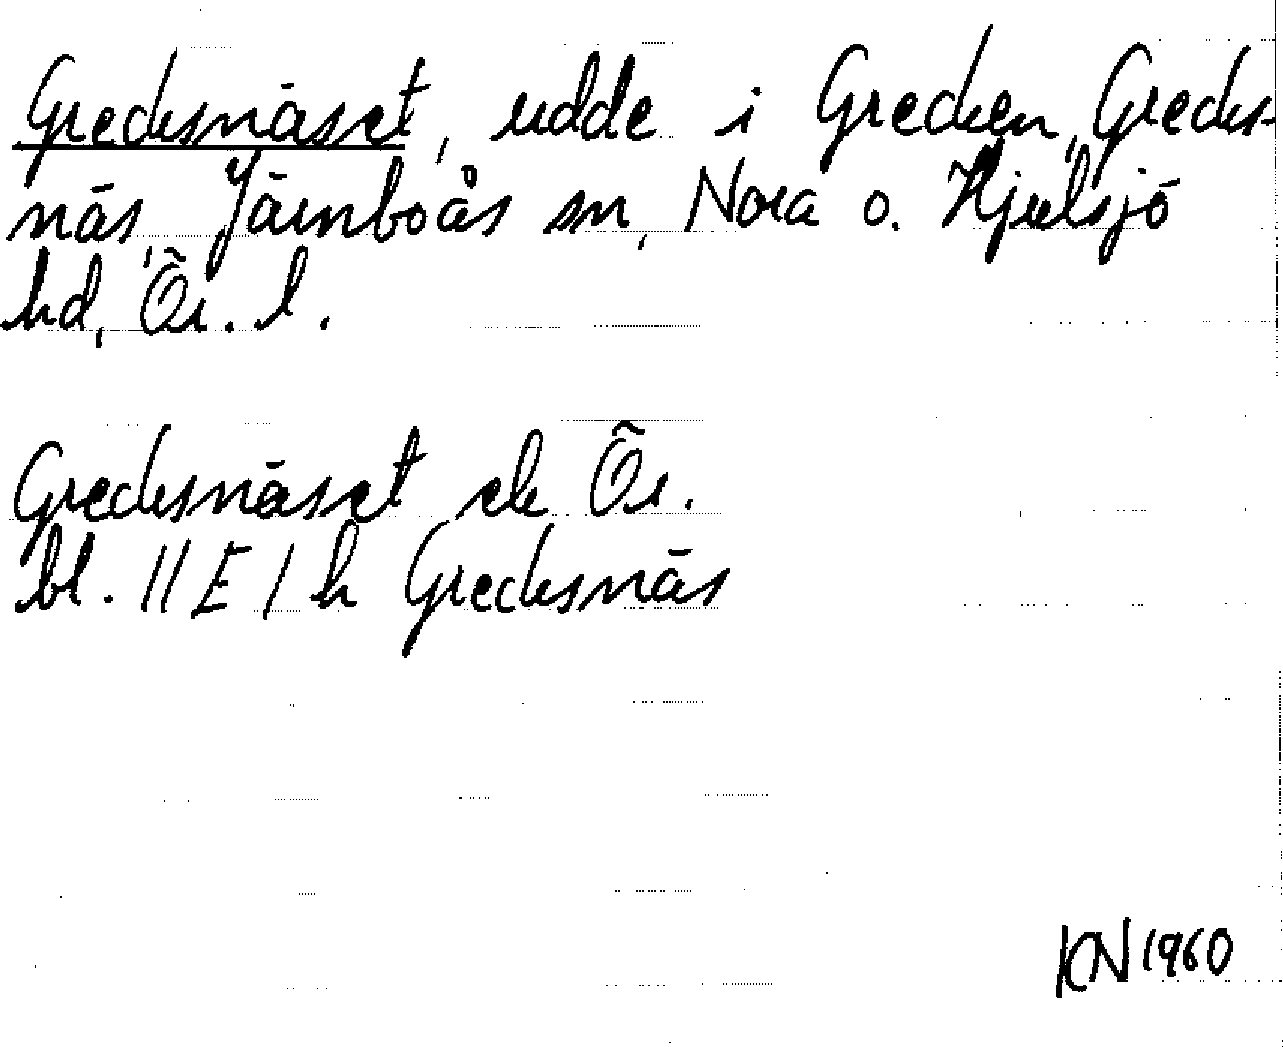 Grecksnäset, udde i Grecken, Grecks-
näs, Järnboås sn, Nora o. Hjulsjö
hd, Ör. l.
Grecksnäset ek Ör.
bl. 11 E 1 h Grecksnäs
KN 1960